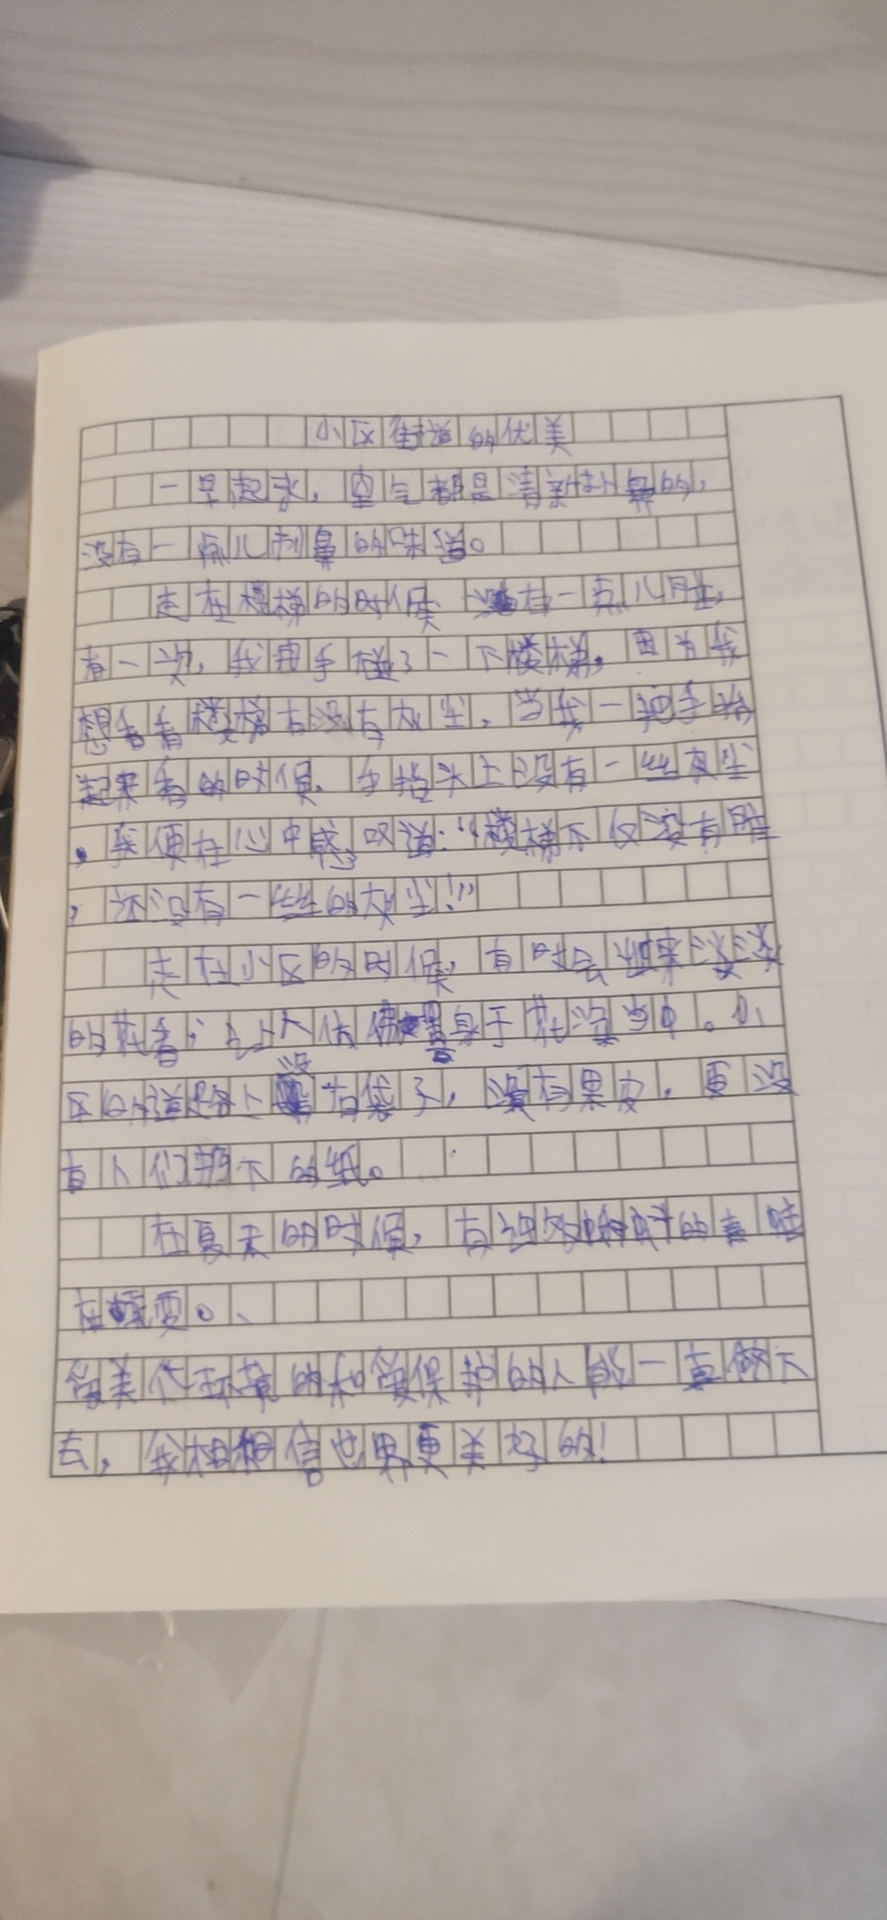 小区街道的优美
一早起来，空气都是清新扑鼻的，
没有一点儿刺鼻的味道。
走在楼梯的时候 没有一点儿脏，
有一次，我用手碰了一下楼梯，因为我
想看看楼梯有没有灰尘，当我一把手抬
起来看的时候，手指头上没有一丝灰尘
，我便在心中感叹道：“楼梯不仅没有脏
，还没有一丝的灰尘！”
走在小区的时候，有时会迎来淡淡
的花香，让人仿佛置身于花海当中。小
区的道路上没有袋子，没有果皮，更没
有人们扔下的纸。
在夏天的时候，有 的声音
在 。
当美化环境的和当保护的人能一直做下
去，我相相信世界更美好的！